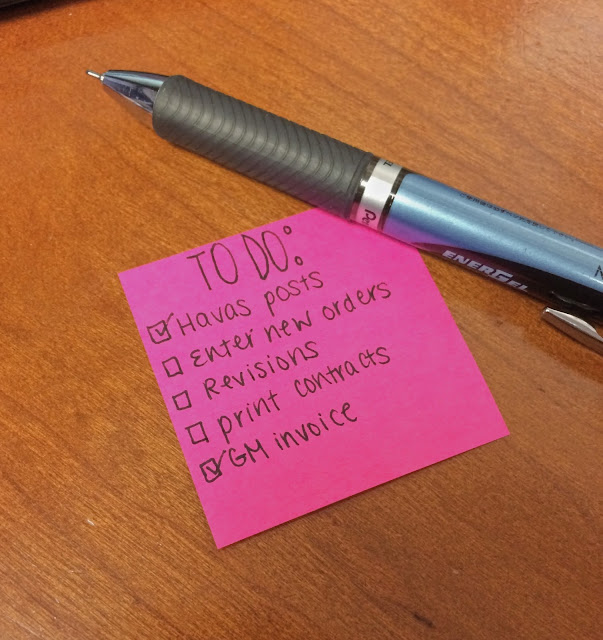 TO DO:
☑ Havas posts
☐ Enter new orders
☐ Revisions
☐ print contracts
☑ GM invoice
ENERGEL